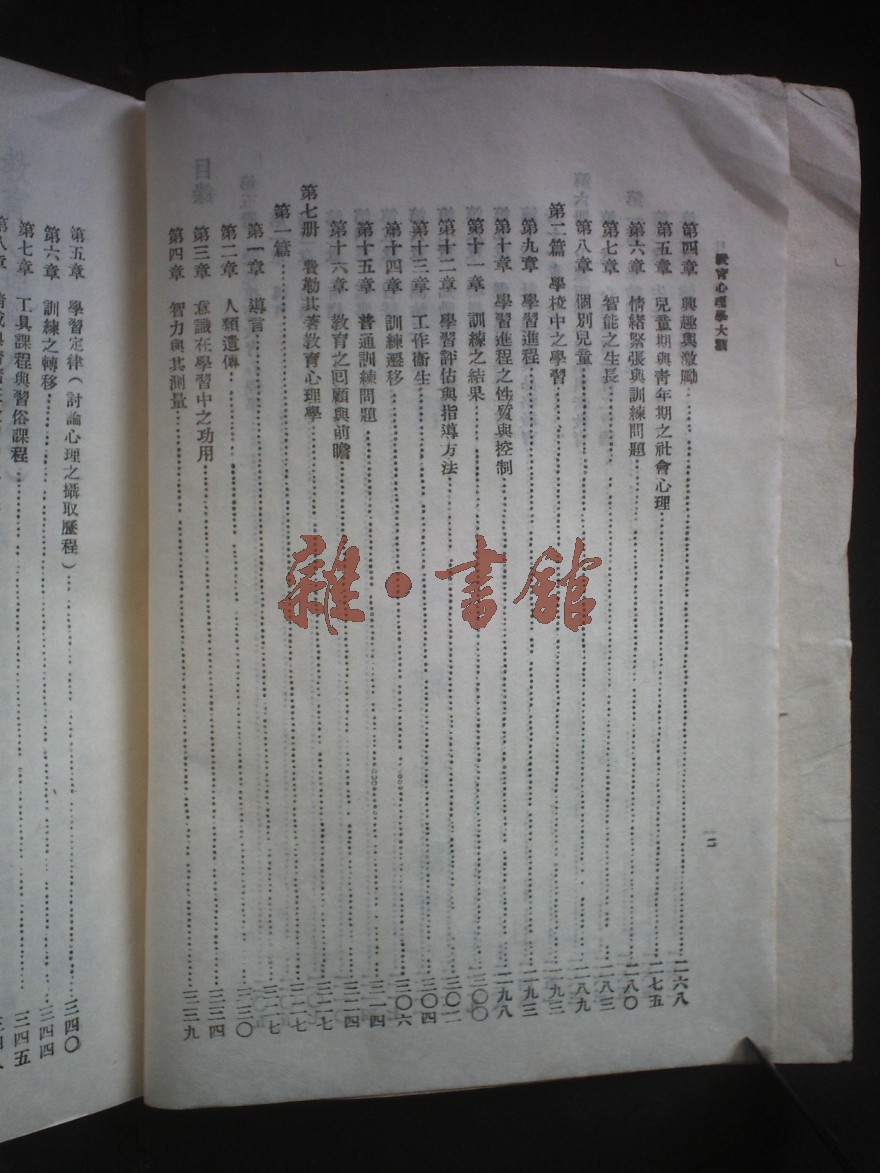 教育心理學大綱
二
第四章 興趣與激勵 二六八
第五章 兒童期與青年期之社會心理 二七五
第六章 情緒緊張與訓練問題 二八〇
第七章 智能之生長 二八三
第八章 個別兒童 二八九
第二篇 學校中之學習 二九三
第九章 學習進程 二九三
第十章 學習進程之性質與控制 二九八
第十一章 訓練之結果 三〇〇
第十二章 學習評估與指導方法 三〇二
第十三章 工作衞生 三〇四
第十四章 訓練遷移 三〇六
第十五章 普通訓練問題 三一四
第十六章 教育之回顧與前瞻 三二四
第七册 費勒其著教育心理學 三二七
第一篇 三二七
第一章 導言 三二七
第二章 人類遺傳 三三〇
第三章 意識在學習中之功用 三三四
第四章 智力與其測量 三三九
第五章 學習定律(討論心理之攝取歷程) 三四〇
第六章 訓練之轉移 三四四
第七章 工具課程與習俗課程 三四五
第八章
雜·書館